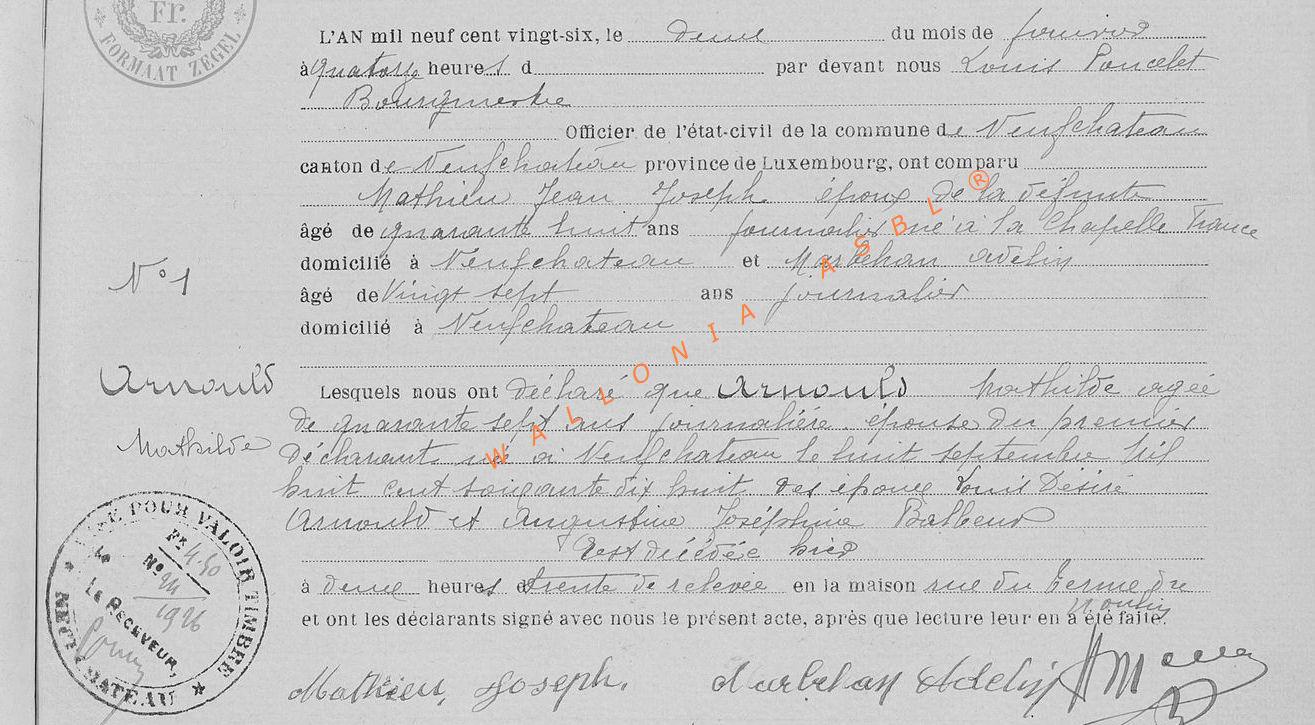 Fr.
FORMAAT ZEGEL
L'AN mil neuf cent vingt-six, le deux du mois de janvier
à quatorze heures d par devant nous Louis Poncelet
Bourgmestre
Officier de l'état-civil de la commune de Neufchateau
canton de Neufchateau province de Luxembourg, ont comparu
Mathieu Jean Joseph époux de la défunte
âgé de quarante huit ans journalier né à la Chapelle France
domicilié à Neufchateau et Marbehan Adelin
âgé de Vingt sept ans journalier
domicilié à Neufchateau
N° 1
Arnould
Mathilde
Lesquels nous ont déclaré que Arnould Mathilde agée
de quarante sept ans journalière épouse du premier
déclarant née à Neufchateau le huit septembre Mil
huit cent soixante dix huit des époux Louis Désiré
Arnould et Augustine Joséphine
est décédée hier
à deux heures trente de relevée en la maison rue du Terme du
Moulin
et ont les déclarants signé avec nous le présent acte, après que lecture leur en a été faite.
Mathieu Joseph. Marbehan Adelin
POUR VALOIR TIMBRE
Fr 4.50
No 24
1926
LE RECEVEUR,
NEUFCHATEAU
WALLONIA ASBL ®